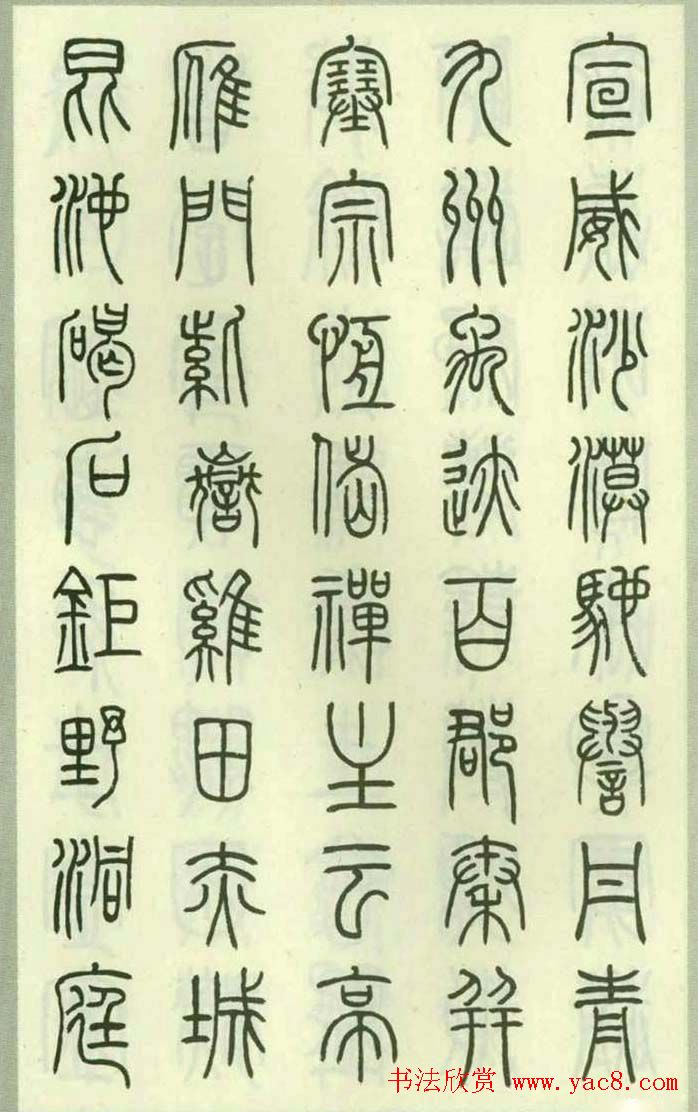 宣威沙漠馳譽丹青
九州禹迹百郡秦并
塞宗恆岱禪主云亭
雁門紫嶽雞田赤城
昆池碣石鉅野洞庭
书法欣赏 www.yac8.com